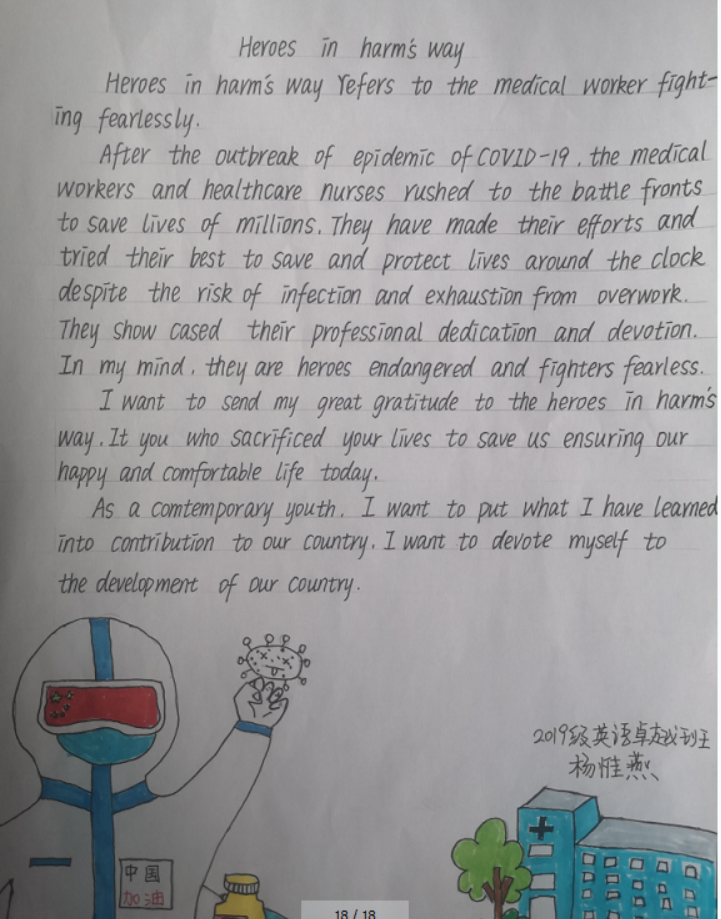 Heroes in harm's way
Heroes in harm's way refers to the medical worker fight-
ing fearlessly.
After the outbreak of epidemic of COVID-19, the medical
workers and healthcare nurses rushed to the battle fronts
to save lives of millions. They have made their efforts and
tried their best to save and protect lives around the clock
despite the risk of infection and exhaustion from overwork.
They show cased their professional dedication and devotion.
In my mind, they are heroes endangered and fighters fearless.
I want to send my great gratitude to the heroes in harm's
way. It you who sacrificed your lives to save us ensuring our
happy and comfortable life today.
As a comtemporary youth, I want to put what I have learned
into contribution to our country. I want to devote myself to
the development of our country.
2019级英语卓越班
杨惟燕
中国
加油
18 / 18